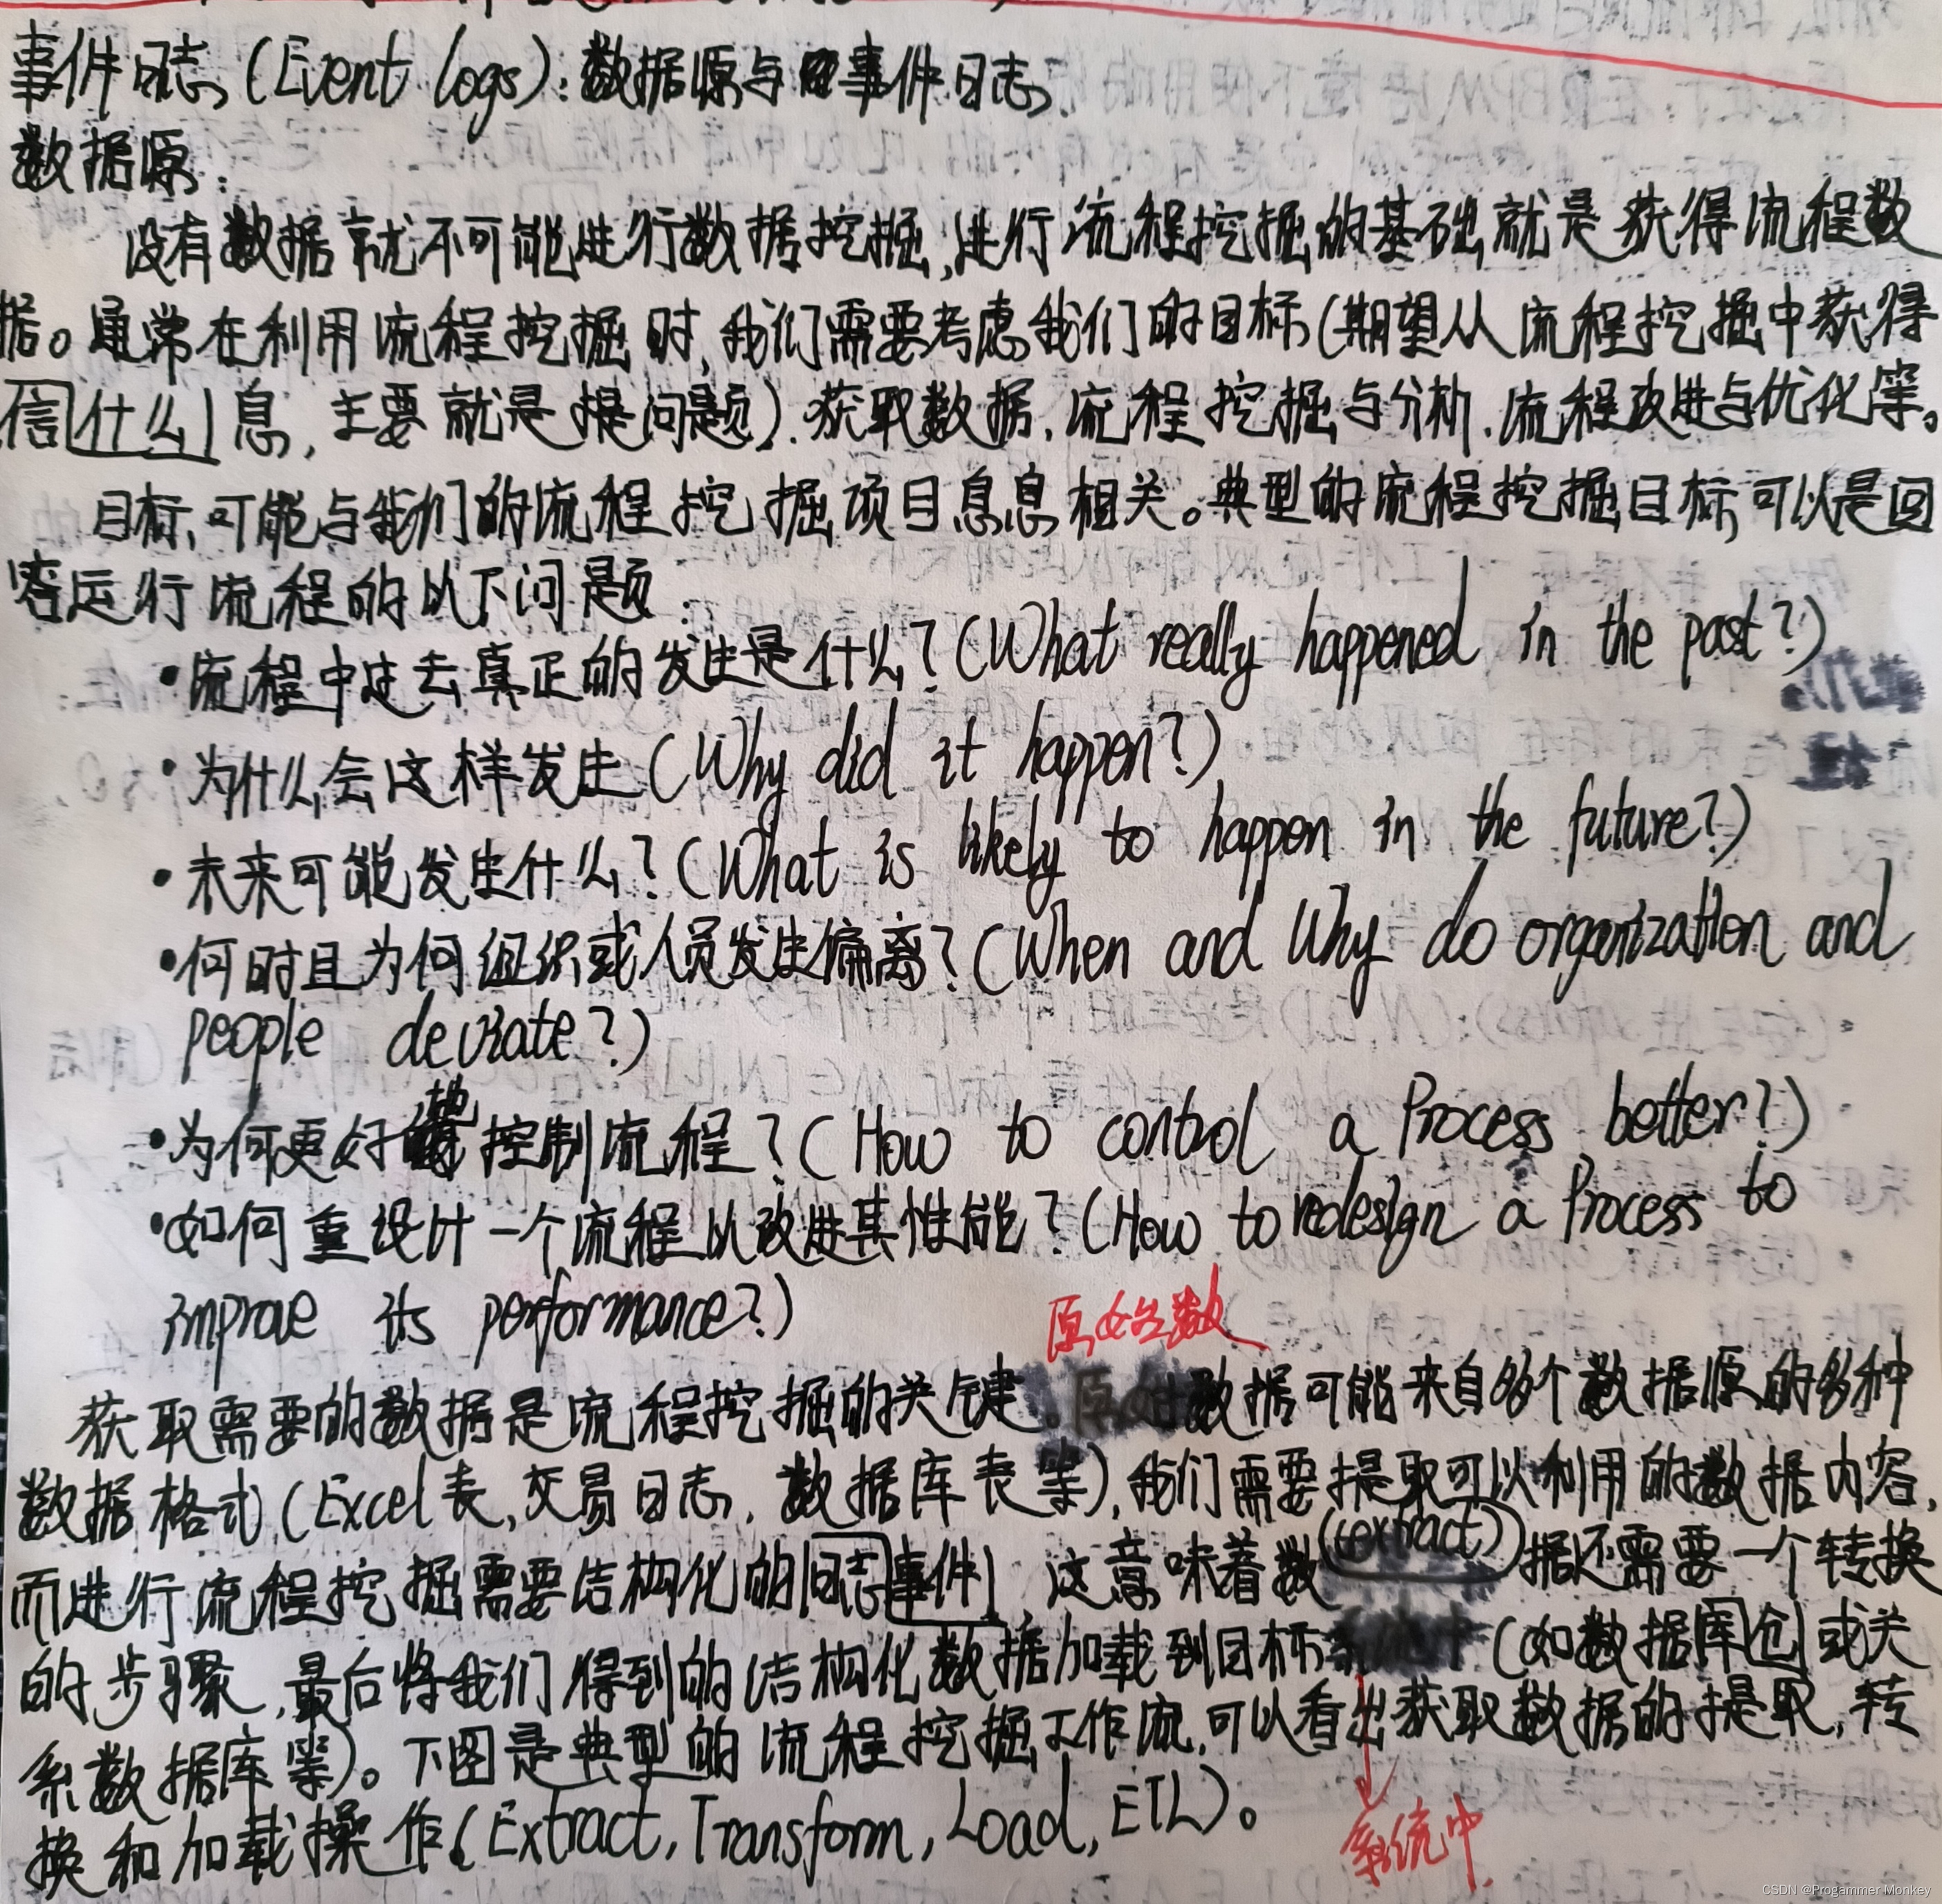 事件日志(Event logs):数据源与事件日志.
数据源:
没有数据就不可能进行数据挖掘,进行流程挖掘的基础就是获得流程数
据。通常在利用流程挖掘时,我们需要考虑我们的目标(期望从流程挖掘中获得
信什么息,主要就是提问题).获取数据,流程挖掘与分析,流程改进与优化等。
目标可能与我们的流程挖掘项目息息相关。典型的流程挖掘目标可以是回
答运行流程的以下问题:
•流程中过去真正的发生是什么?(What really happened in the past?)
•为什么会这样发生(Why did it happen?)
•未来可能发生什么?(What is likely to happen in the future?)
•何时且为何组织或人员发生偏离?(When and Why do organization and
people deviate?)
地
•为何更好控制流程?(How to control a Process better?)
•如何重设计一个流程以改进其性能?(How to redesign a Process to
improve its performance?)
原始数
获取需要的数据是流程挖掘的关键.原始数据可能来自多个数据源的多种
数据格式(Excel表,交易日志,数据库表等),我们需要提取可以利用的数据内容,
(extract)
而进行流程挖掘需要结构化的日志事件 这意味着数据还需要一个转换
的步骤,最后将我们得到的结构化数据加载到目标系统中(如数据库仓或关
系数据库等)。下图是典型的流程挖掘工作流,可以看出获取数据的提取,转
换和加载操作(Extract,Transform,Load,ETL)。
系统中
CSDN @Progammer Monkey